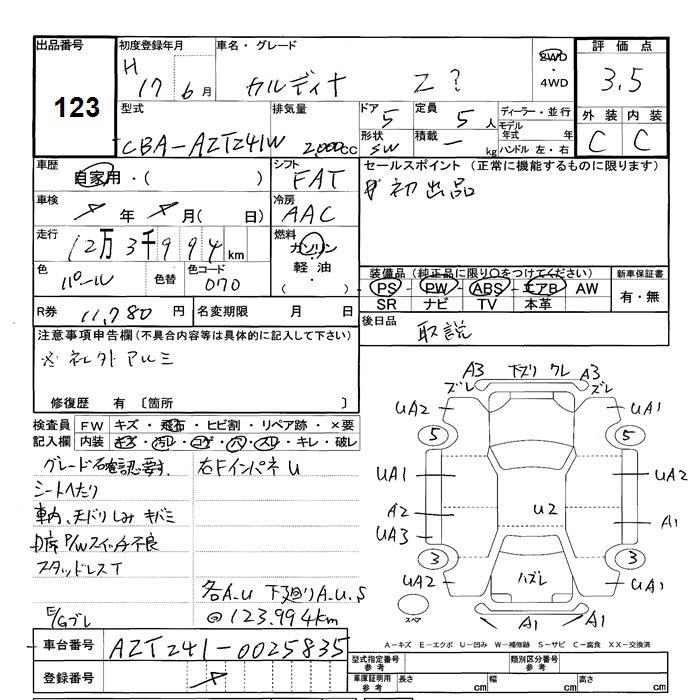 出品番号 初度登録年月 車名・グレード 2WD ・4WD 評価点
123 H 17 6月 カルディナ Z? 3.5
型式 排気量 ドア 5 定員 5人 ディーラー・並行 外装 内装
CBA-AZT241W 2,000cc 形状 SW 積載 ー kg モデル年式 年 ハンドル 左・右 C C
車歴 自家用・( ) シフト FAT セールスポイント (正常に機能するものに限ります)
車検 年 月( 日) 冷房 AAC 初出品
走行 12万3千994km 燃料 ガソリン・軽油・
色 パール 色替 色コード 070 装備品 (純正品に限り○をつけてください) 新車保証書
PS PW ABS エアB AW 有・無
SR ナビ TV 本革
R券 11,780円 名変期限 月 日 後日品 取説
注意事項申告欄 (不具合内容等は具体的に記入して下さい)
※ネクストアルミ
修復歴 有 〔箇所 〕
検査員記入欄 FW キズ・飛石・ヒビ割・リペア跡・×要
内装 キズ・汚レ・コゲ・穴・スレ・キレ・破レ
グレード確認要す 右FインパネU
シートへたり
車内、天ドリしみ キバミ
D席P/Wスイッチ不良
スタッドレスT
各A.U 下廻りA.U.S
E/Gブレ @123.994km
A3 下ズリ ワレ A3
ズレ ズレ
UA2 UA1
5 5
UA1 UA2
A2 U2 A1
UA3
3 3
UA2 ハズレ UA1
スペア A1 A1
A-キズ E-エクボ U-凹み W-補修跡 S-サビ C-腐食 XX-交換済
車台番号 AZT241-0025835 型式指定番号 参考 類別区分番号 参考
登録番号 車庫証明用 参考 長さ cm 幅 cm 高さ cm